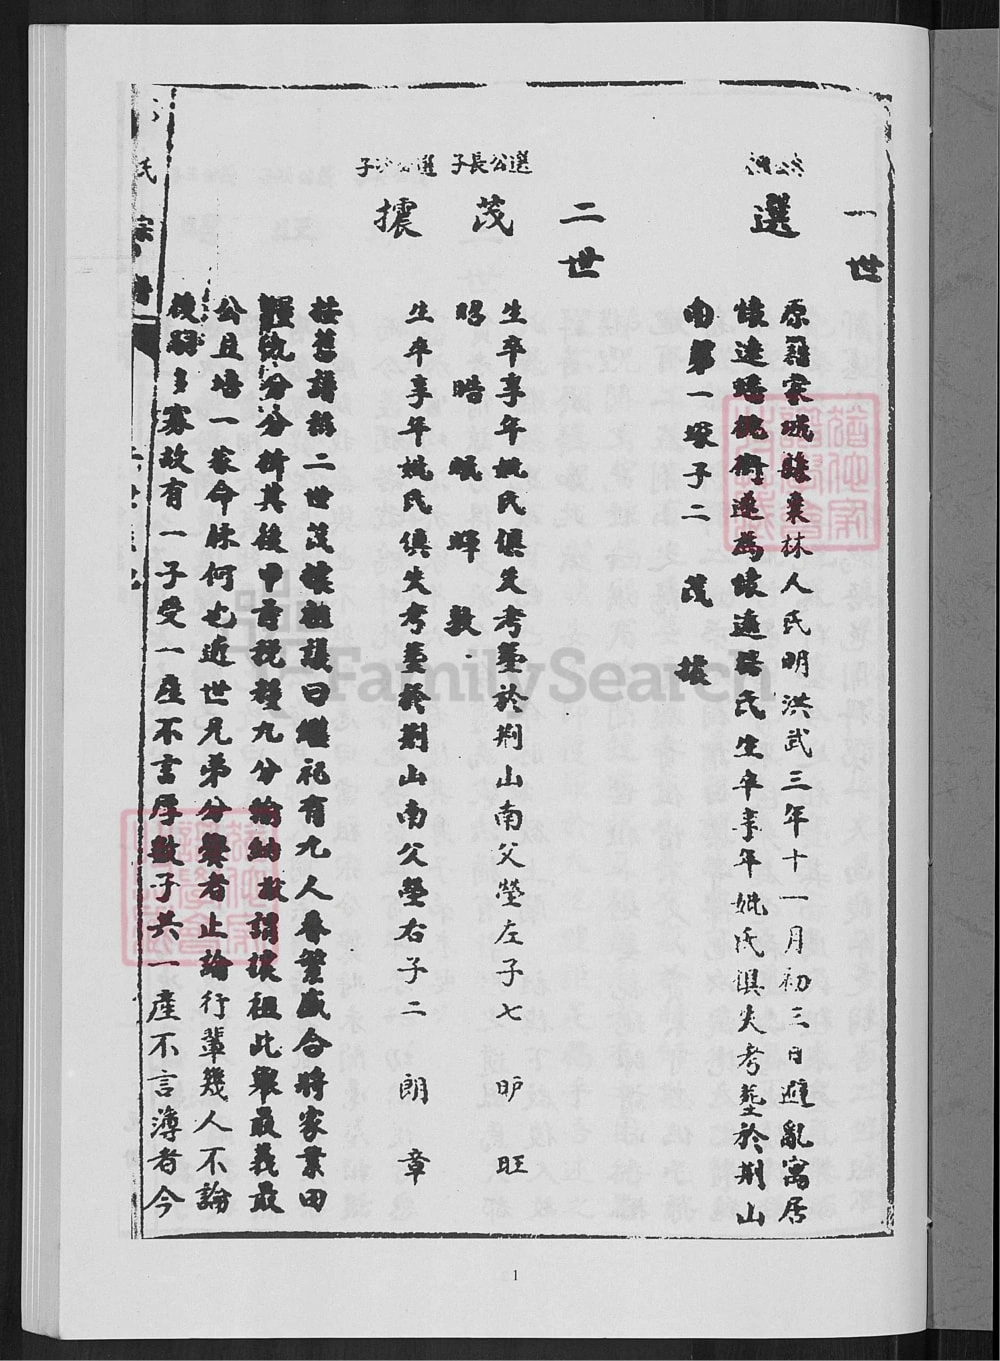 一世
選
原籍宋城棘棗林人氏明洪武三年十一月初三日避亂寓居
懷遠 遂為懷遠 氏生卒享年妣氏俱失考塟於荆山
南第一塚子二 茂 擴
二世
選公長子
茂
生卒享年妣氏俱失考塟於荆山南父塋左子七 昈 旺
昭 晧 昽 暉 敖
選公次子
擴
生卒享年妣氏俱失考塟於荆山南父塋右子二 朗 章
按舊譜載二世茂擴祖議曰繼祀有九人眷繁盛合將家業田
糧九分分析其後甲苗税糧九分输納故謂擴祖此舉最義最
公且培一家命脉何也近世兄弟分爨者止論行輩幾人不論
後嗣多寡故有一子受一產不言厚數子共一產不言薄者今
氏宗譜
FamilySearch
1